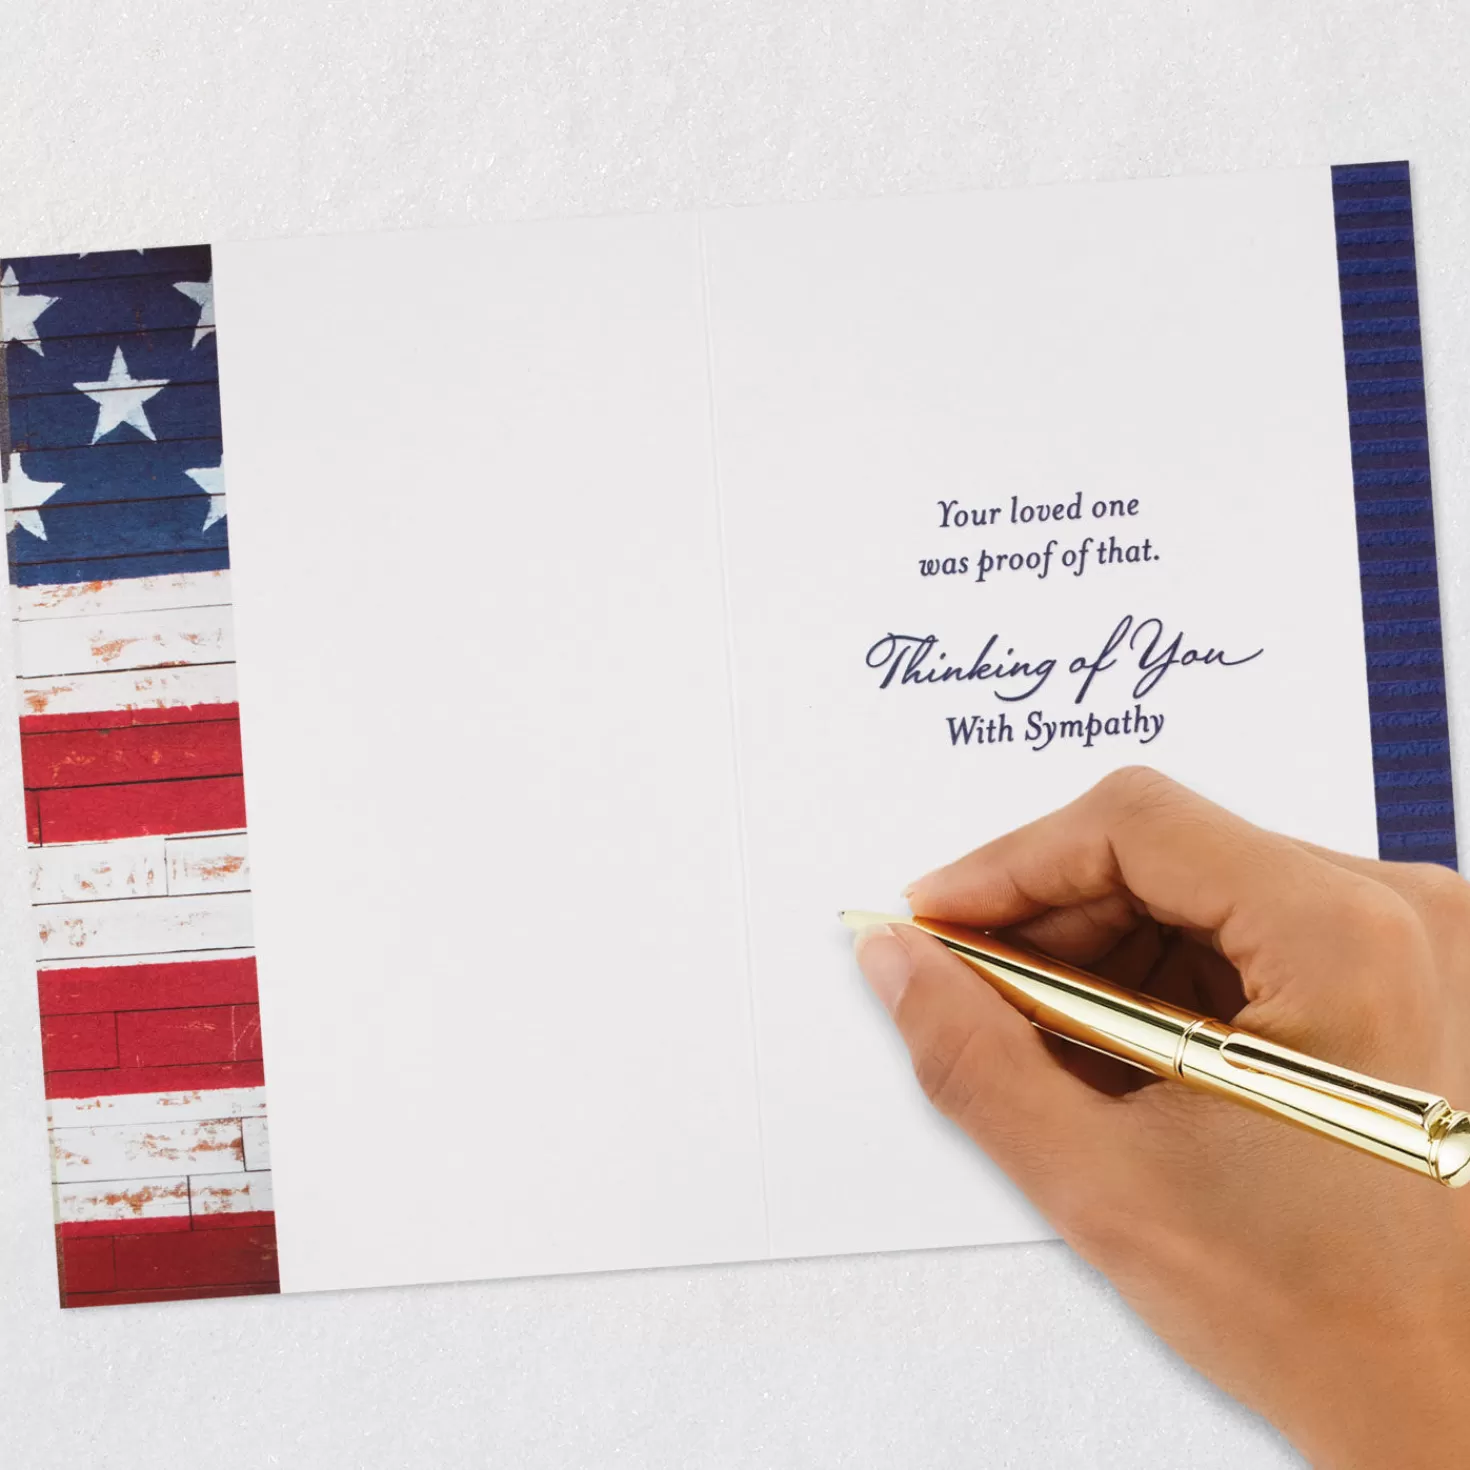 Your loved one
was proof of that.
Thinking of You
With Sympathy